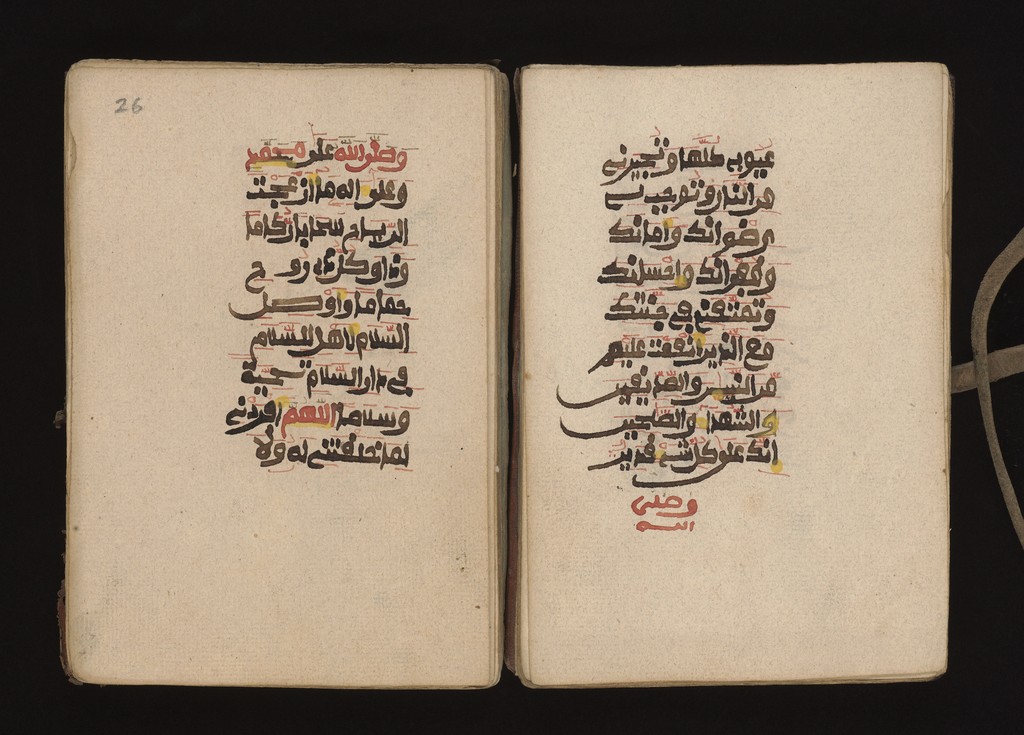 عيوبي كلها وتجيرني
من النار وتوجب لي
رضوانك وامانك
وغفرانك واحسانك
وتمتعني في جنتك
مع الذين انعمت عليهم
من النبيين والصديقين
والشهدا والصالحين
انك على كل شيء قدير
وصلى
الله
26
وصلى الله على محمد
وعلى اله ما ازعجت
الرياح سحابا ركاما
وذاق كل ذي روح
حماما واوصل
السلام لاهل السلام
في دار السلام تحية
وسلاما اللهم افردني
لما خلقتني له ولا